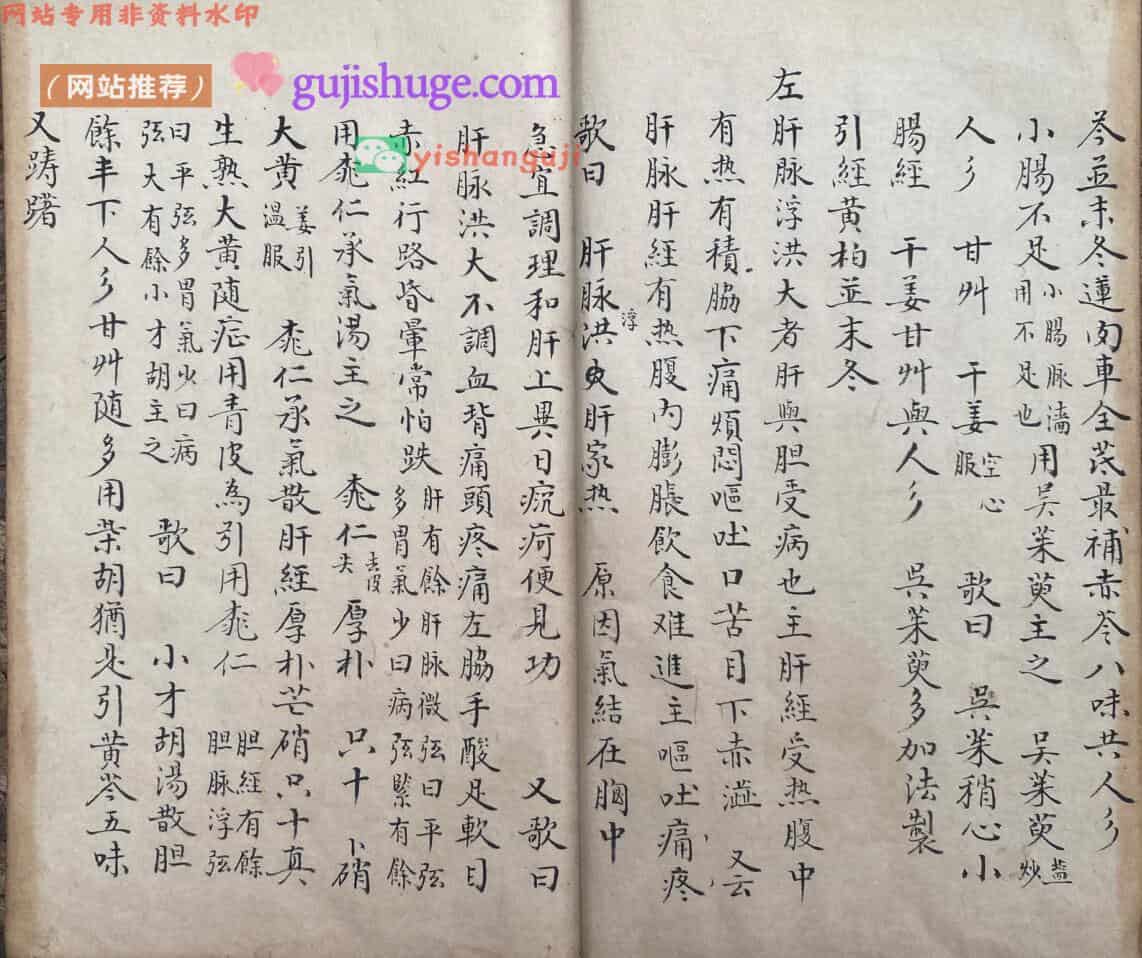 网站专用非资料水印
(网站推荐)
gujishuge.com
yishanguji
苓並末冬蓮肉車全茋最補赤苓八味共人彡
小腸不足小腸脉濇用不足也用吴茱萸主之 吴茱萸盐炒
人彡 甘艸 干姜空心服 歌曰 吳茱稍心小
腸經 干姜甘艸與人彡 吳茱萸多加法製
引經黄柏並末冬
左
肝脉浮洪大者肝與胆受病也主肝經受热腹中
有热有積脇下痛煩悶嘔吐口苦目下赤澁 又云
肝脉肝經有热腹内膨脹飲食难進主嘔吐痛疼
歌曰 肝脉浮洪肝家热 原因氣結在胸中
急宜調理和肝上異日疣疴便見功 又歌曰
肝脉洪大不調血背痛頭疼痛左脇手酸足軟目
赤紅行路昏暈常怕跌肝有餘肝脉微弦曰平弦多胃氣少曰病弦緊有餘
用桃仁承氣湯主之 桃仁去皮尖 厚朴 只十 卜硝
大黄姜引温服 桃仁承氣散肝經厚朴芒硝只十真
生熟大黄随症用青皮為引用桃仁 胆經有餘胆脉浮弦
曰平弦多胃氣少曰病弦大有餘小才胡主之 歌曰 小才胡湯散胆
餘半下人彡甘艸随多用柴胡猶是引黄苓五味
又踌躇